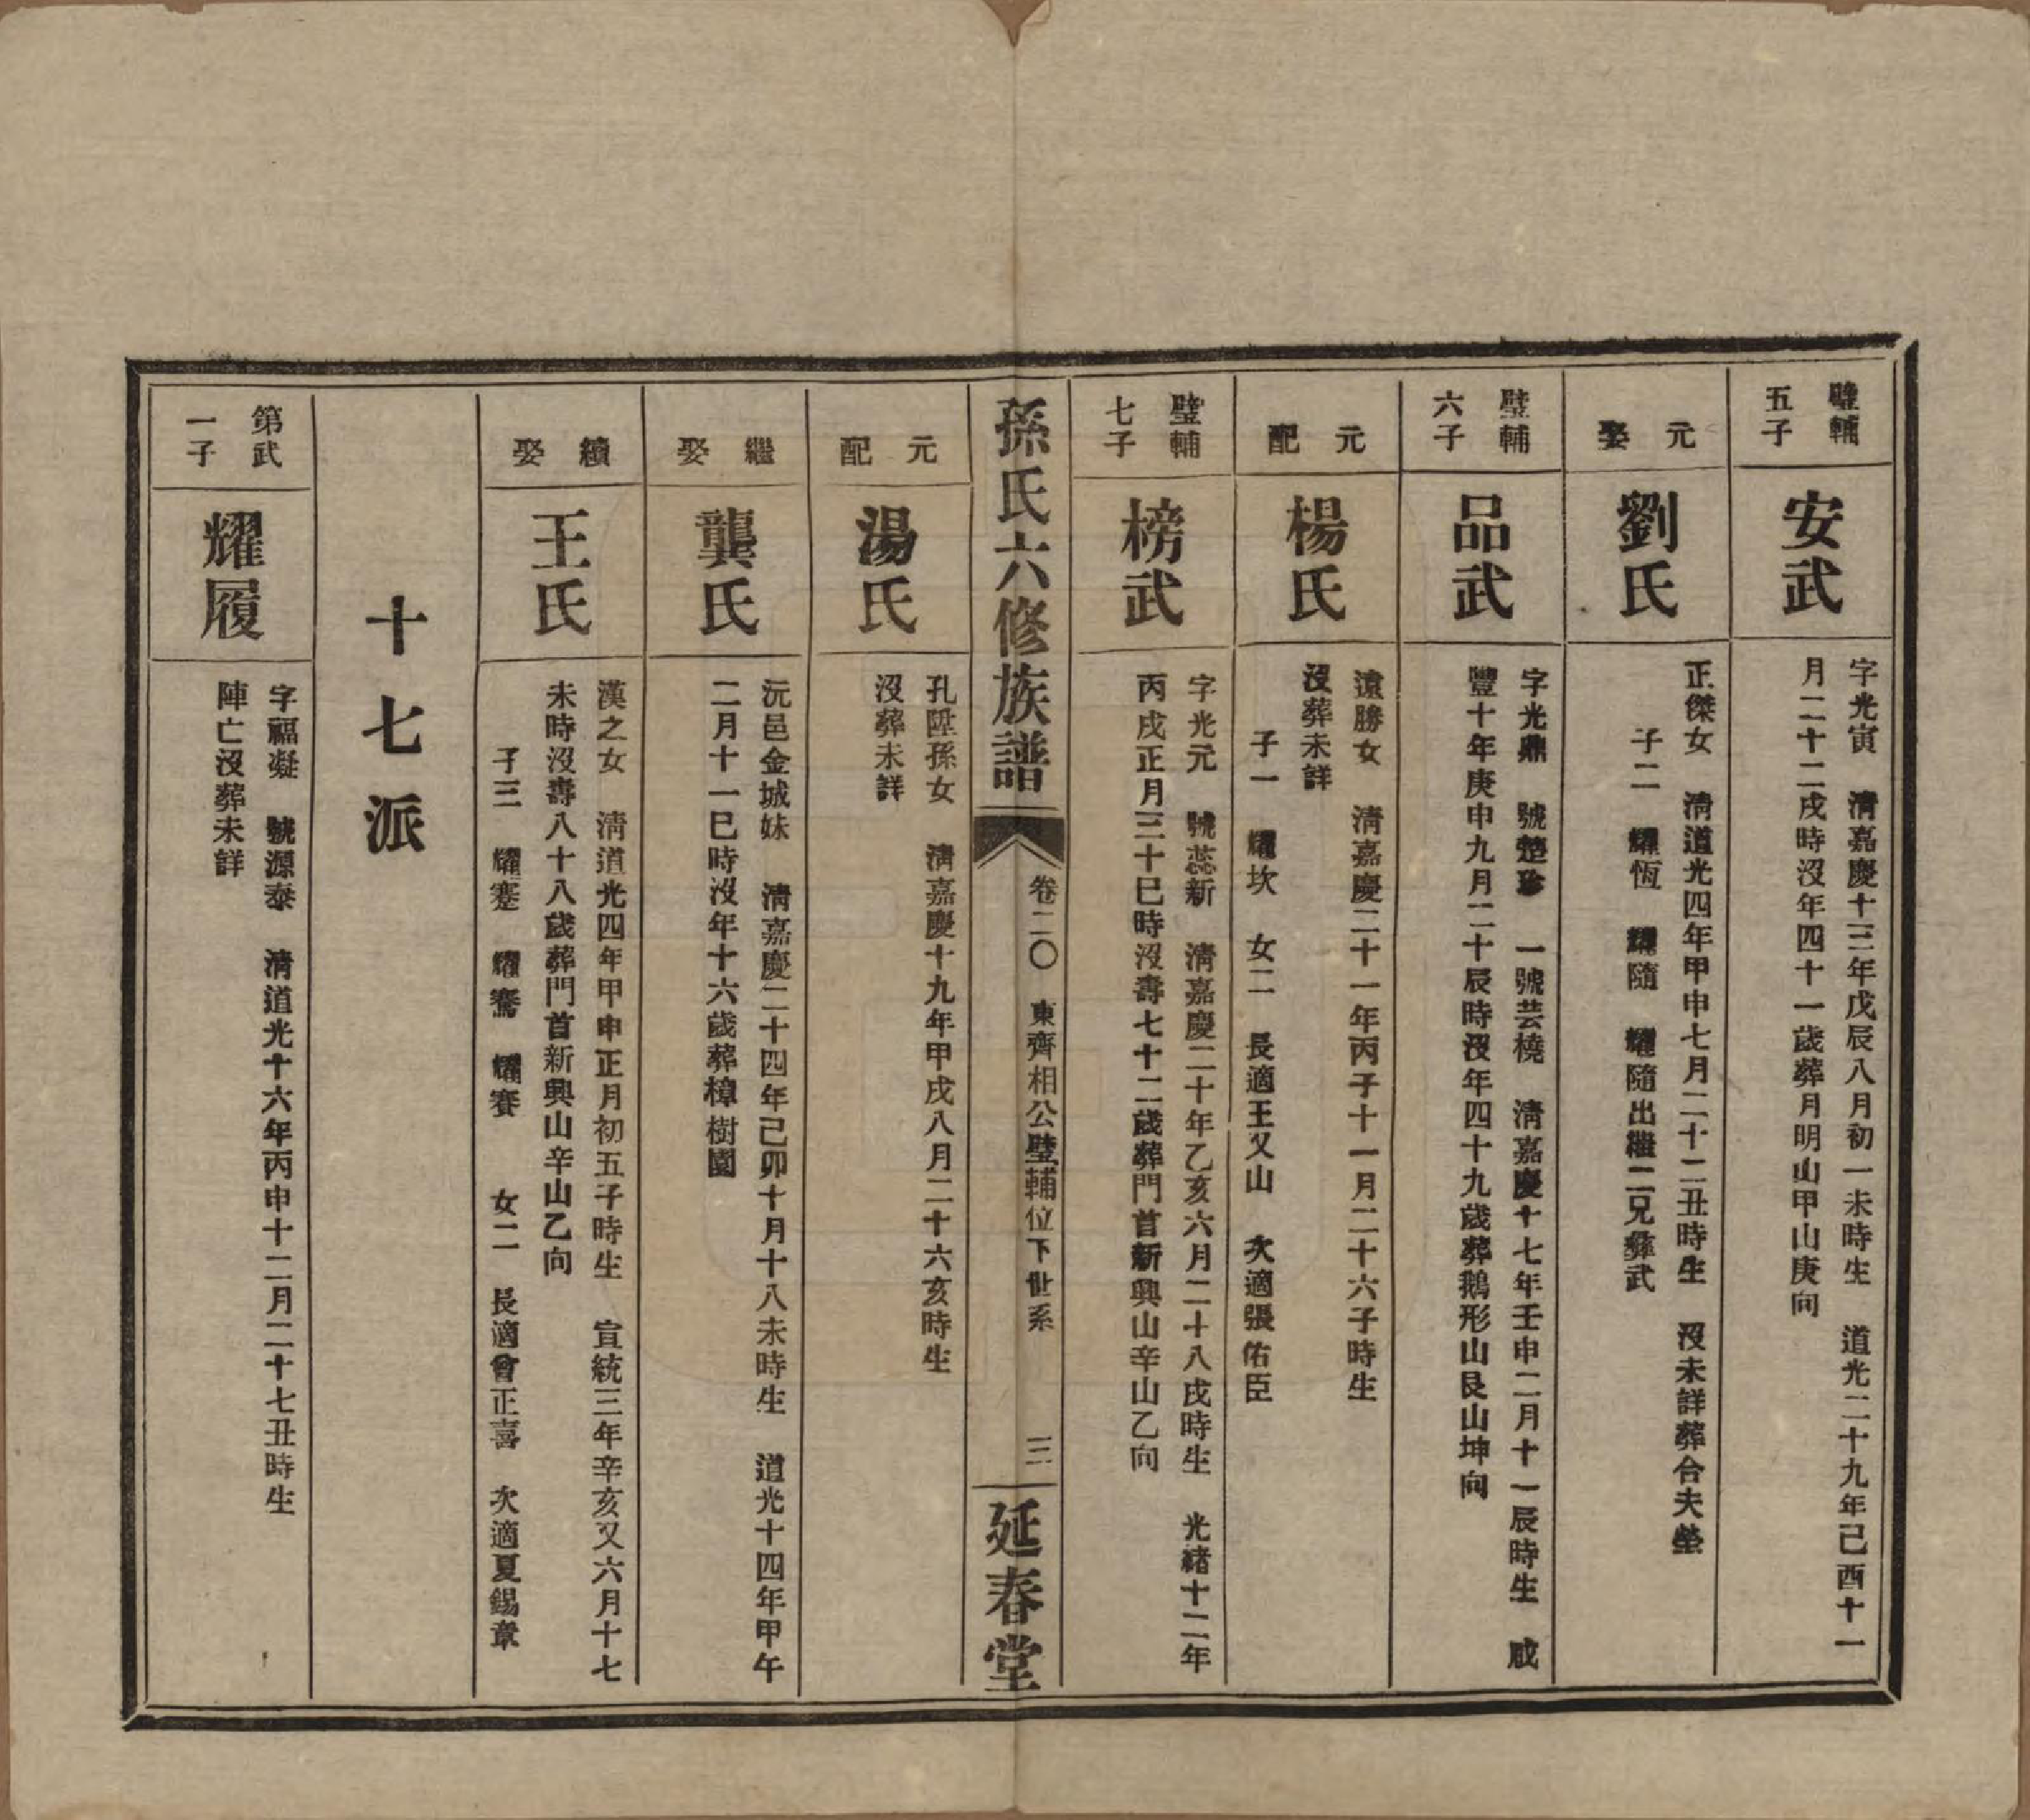 璧輔
五子
安武
字光寅　清嘉慶十三年戊辰八月初一未時生　道光二十九年己酉十一
月二十二戌時沒年四十一歲葬月明山甲山庚向
元
娶
劉氏
正傑女　清道光四年甲申七月二十二丑時生　沒未詳葬合夫塋
子二　耀恆　耀隨　耀隨出繼二兄彝武
璧輔
六子
品武
字光鼎　號楚珍　一號芸橈　清嘉慶十七年壬申二月十一辰時生　咸
豐十年庚申九月二十辰時沒年四十九歲葬鵝形山艮山坤向
元
配
楊氏
遠勝女　清嘉慶二十一年丙子十一月二十六子時生
沒葬未詳
子一　耀坎　女二　長適王又山　次適張佑臣
璧輔
七子
榜武
字光元　號蕊新　清嘉慶二十年乙亥六月二十八戌時生　光緒十二年
丙戌正月三十巳時沒壽七十二歲葬門首新興山辛山乙向
孫氏六修族譜
卷二〇　東齊相公璧輔位下世系　三
延春堂
元
配
湯氏
孔陞孫女　清嘉慶十九年甲戌八月二十六亥時生
沒葬未詳
繼
娶
龔氏
沅邑金城妹　清嘉慶二十四年己卯十月十八未時生　道光十四年甲午
二月十一巳時沒年十六歲葬樟樹園
續
娶
王氏
漢之女　清道光四年甲申正月初五子時生　宣統三年辛亥又六月十七
未時沒壽八十八歲葬門首新興山辛山乙向
子三　耀蹇　耀騫　耀賽　女二　長適曾正喜　次適夏錫章
十七派
第武
一子
耀履
字福凝　號源泰　清道光十六年丙申十二月二十七丑時生
陣亡沒葬未詳